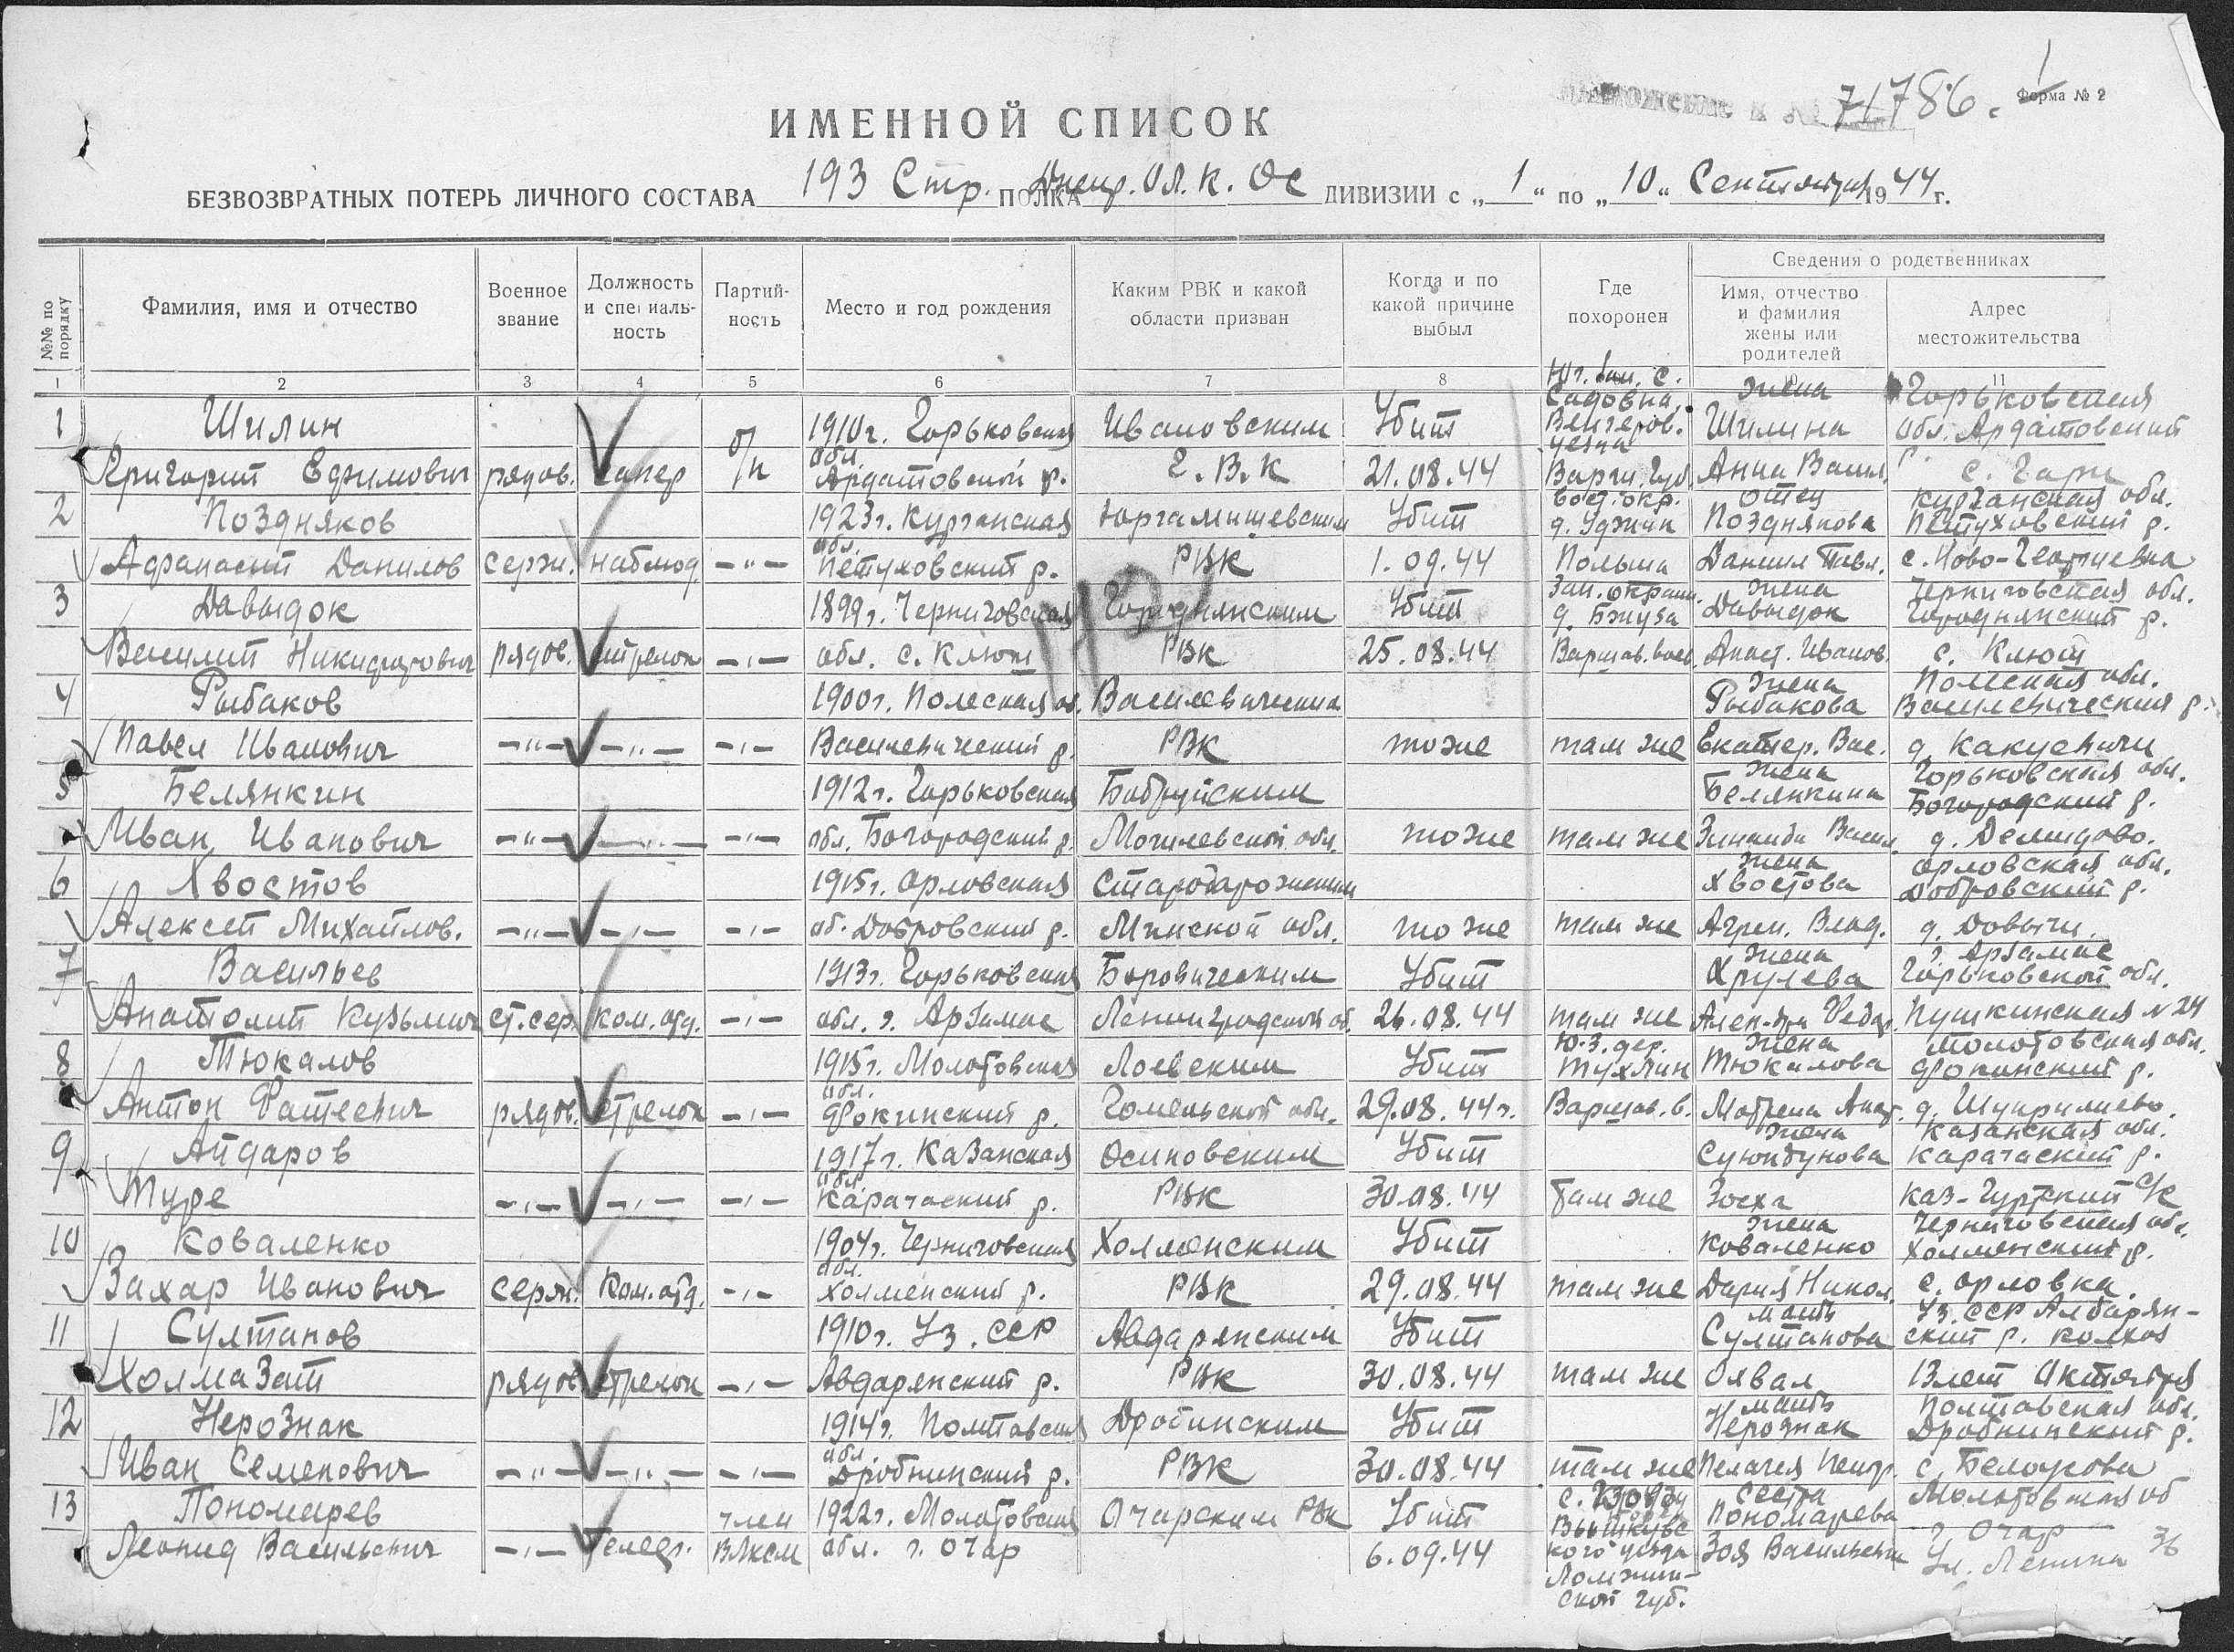 71786.
1
Форма № 2
ИМЕННОЙ СПИСОК
БЕЗВОЗВРАТНЫХ ПОТЕРЬ ЛИЧНОГО СОСТАВА 193 Стр. ПОЛКА Днепр. ДИВИЗИИ с „1“ по „10“ Сентября 1944 г.
№№ по порядку
Фамилия, имя и отчество
Военное звание
Должность и специаль-ность
Партий-ность
Место и год рождения
Каким РВК и какой области призван
Когда и по какой причине выбыл
Где похоронен
Сведения о родственниках
Имя, отчество и фамилия жены или родителей
Адрес местожительства
1 2 3 4 5 6 7 8 11
Юг. с. жена Горьковская
1 Шилин 1910г. Горьковская Ивановским Убит Венгеров. Шилина обл. Ардатовский
уезда
Григорий Ефимович рядов. сапер б/п обл. Ардатовский р. Г.В.К 21.08.44 Анна Васил. с.
отец Курганская обл.
2 Поздняков 1923г. Курганская Юргамишевским Убит Позднякова Петуховский р.
Афанасий Данилов серж. наблюд. –"– обл. Петуховский р. РВК 1.09.44 Польша Даниил Павл. с. Ново-Георгиевка
Зап. окраин. жена Черниговская обл.
3 Давыдок 1899г. Черниговская Городнянским Убит д. Давыдок Городнянский р.
Василий Никифорович рядов. стрелок –"– обл. с. Клюш РВК 25.08.44 Варшав. воев. Анаст. Иванов. с. Клюш
жена Полеская обл.
4 Рыбаков 1900г. Полеская об. Василевическим Рыбакова Василевический р.
Павел Иванович –"– –"– –"– Василевический р. РВК тоже там же Екатер. Вас. д. Какуевичи
жена Горьковская обл.
5 Белянкин 1912г. Горьковская Бобруйским Белянкина Богородский р.
Иван Иванович –"– –"– –"– обл. Богородский р. Могилевской обл. тоже там же Зинаида Васил. д. Демидово.
жена Орловская обл.
6 Хвостов 1915г. Орловская Стародорожским Хвостова Добровский р.
Алексей Михайлов. –"– –"– –"– об. Добровский р. Минской обл. тоже там же Агрен. Влад. д.
жена г. Арзамас
7 Васильев 1913г. Горьковская Боровическим Убит Хрулева Горьковской обл.
Анатолий Кузьмич ст.сер. ком.отд. –"– обл. г. Арзамас Ленинградской об. 26.08.44 там же Пушкинская № 24
Ю.З. дер. жена Молотовская обл.
8 Тюкалов 1915г. Молотовская Лоевским Убит Тухлин Тюкалова Фокинский р.
Антон Фатеевич рядов. стрелок –"– обл. Фокинский р. Гомельской обл. 29.08.44г. Варшав. в. Матрена д.
жена Казанская обл.
9 Айдаров 1917г. Казанская Осиповским Убит Суюндукова Карагаский р.
Туре –"– –"– –"– обл. Карагаский р. РВК 30.08.44 там же Зоеха с/с
жена Черниговская обл.
10 Коваленко 1904г. Черниговская Холменским Убит Коваленко Холменский р.
Захар Иванович серж. Ком.отд. –"– обл. Холменский р. РВК 29.08.44 там же Дария Никол. с. Орловка.
мать Уз. ССР Алдарян-
11 Султанов 1910г. Уз. ССР Авдарянским Убит Султанова ский р. колхоз
Холмазат рядов. стрелок –"– Авдарянский р. РВК 30.08.44 там же Олвал 13 лет Октября
мать Полтавская обл.
12 Нерознак 1914г. Полтавская Дробинским Убит Нерознак Дробнинский р.
Иван Семенович –"– –"– –"– обл. Дробнинский р. РВК 30.08.44 там же Пелагея Петр. с. Белоусова
сестра Молотовская об
13 Пономарев член 1922г. Молотовская Очарским РВК Убит Пономарева г. Очар
Леонид Васильевич –"– Телеф. ВЛКСМ обл. г. Очар 6.09.44 кого уезда Зоя Васильевна Ул. Ленина 36
Ломжин-
ской губ.